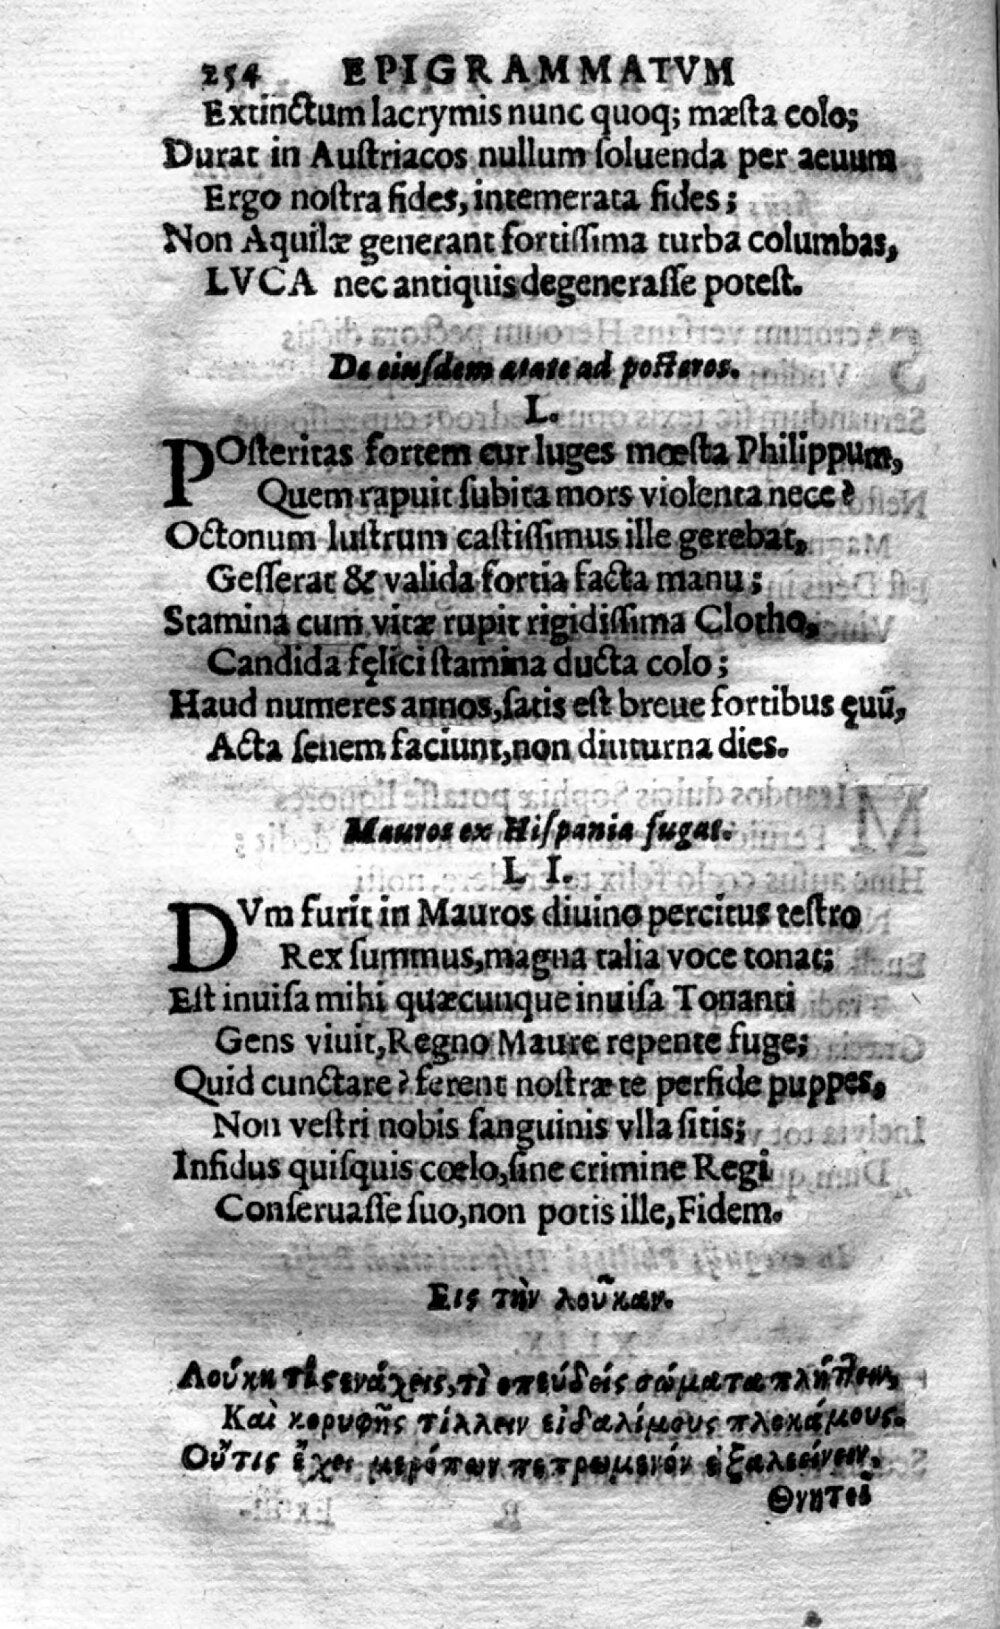 254 EPIGRAMMATVM
Extinctum lacrymis nunc quoq; mæsta colo;
Durat in Austriacos nullum soluenda per aeuum
Ergo nostra fides, intemerata fides;
Non Aquilæ generant fortissima turba columbas,
LVCA nec antiquis degenerasse potest.
De eiusdem ætate ad posteros.
L.
POsteritas fortem cur luges mœsta Philippum,
Quem rapuit subita mors violenta nece?
Octonum lustrum castissimus ille gerebat,
Gesserat & valida fortia facta manu;
Stamina cum vitæ rupit rigidissima Clotho,
Candida fęlici stamina ducta colo;
Haud numeres annos, satis est breue fortibus ęuũ,
Acta senem faciunt, non diuturna dies.
Mauros ex Hispania fugat.
L I.
DVm furit in Mauros diuino percitus œstro
Rex summus, magna talia voce tonat;
Est inuisa mihi quæcunque inuisa Tonanti
Gens viuit, Regno Maure repente fuge;
Quid cunctare? ferent nostræ te perfide puppes,
Non vestri nobis sanguinis vlla sitis;
Infidus quisquis cœlo, sine crimine Regi
Conseruasse suo, non potis ille, Fidem.
Εις τὴν λοῦκαν.
Λούκη στενάχεις, τὶ σπεύδεις σώματα πλήττειν,
Καὶ κορυφῆς τίλλειν εἰδαλίμους πλοκάμους.
Οὔτις ἔχει μερόπων πετρωμενόν ἐξαλεείνειν.
Θνητοῖ